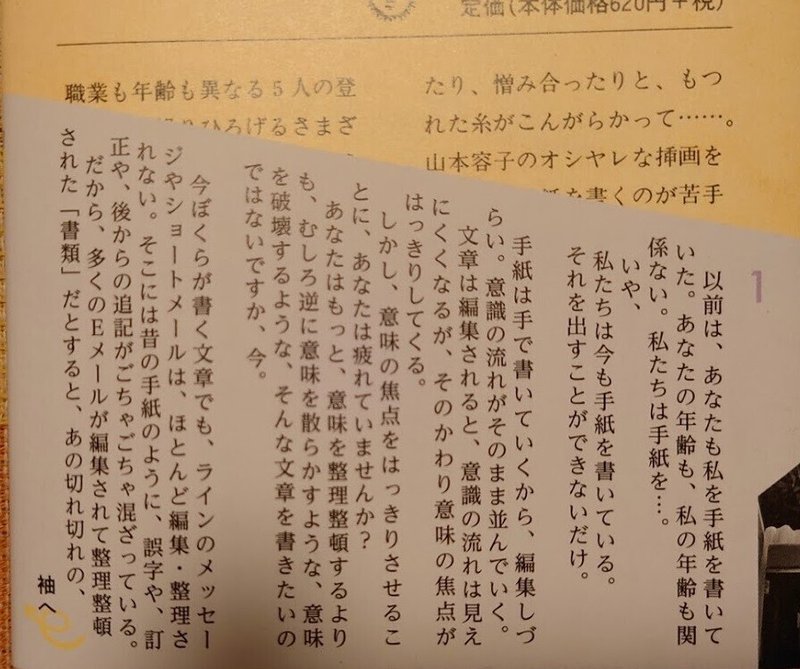 定価(本体価格620円+税)
職業も年齢も異なる5人の登
りひろげるさまざ
たり、憎み合ったりと、もつ
れた糸がこんがらかって……。
山本容子のオシャレな挿画を
を書くのが苦手
1
以前は、あなたも私を手紙を書いて
いた。あなたの年齢も、私の年齢も関
係ない。私たちは手紙を…。
いや、
私たちは今も手紙を書いている。
それを出すことができないだけ。
手紙は手で書いていくから、編集しづ
らい。意識の流れがそのまま並んでいく。
文章は編集されると、意識の流れは見え
にくくなるが、そのかわり意味の焦点が
はっきりしてくる。
しかし、意味の焦点をはっきりさせるこ
とに、あなたは疲れていませんか?
あなたはもっと、意味を整理整頓するより
も、むしろ逆に意味を散らかすような、意味
を破壊するような、そんな文章を書きたいの
ではないですか、今。
今ぼくらが書く文章でも、ラインのメッセー
ジやショートメールは、ほとんど編集・整理さ
れない。そこには昔の手紙のように、誤字や、訂
正や、後からの追記がごちゃごちゃ混ざっている。
だから、多くのEメールが編集されて整理整頓
された「書類」だとすると、あの切れ切れの、
袖へ